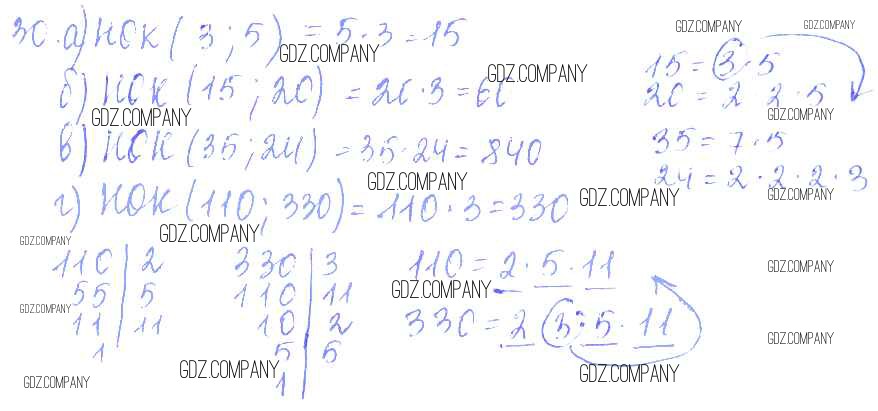 30. а) НОК (3 ; 5) = 5 · 3 = 15
GDZ.COMPANY
GDZ.COMPANY
GDZ.COMPANY
15 = 3 · 5
б) НОК (15 ; 20) = 20 · 3 = 60
GDZ.COMPANY
20 = 2 2 · 5
GDZ.COMPANY
GDZ.COMPANY
в) НОК (35 ; 24) = 35 · 24 = 840
35 = 7 · 5
24 = 2 · 2 · 2 · 3
GDZ.COMPANY
GDZ.COMPANY
GDZ.COMPANY
г) НОК (110 ; 330) = 110 · 3 = 330
GDZ.COMPANY
GDZ.COMPANY
110 | 2
55 | 5
11 | 11
1
330 | 3
110 | 11
10 | 2
5 | 5
1
110 = 2 · 5 · 11
GDZ.COMPANY
GDZ.COMPANY
330 = 2 · 3 · 5 · 11
GDZ.COMPANY
GDZ.COMPANY
GDZ.COMPANY
GDZ.COMPANY
GDZ.COMPANY